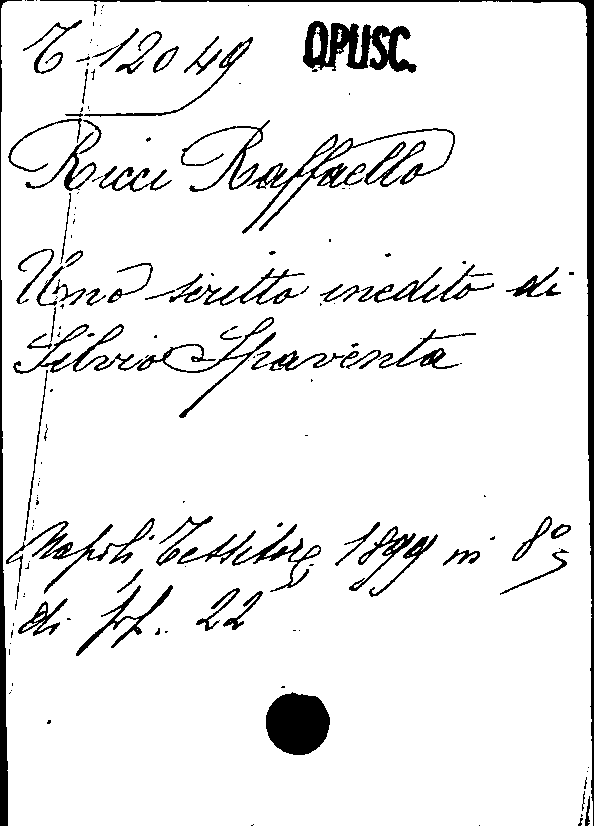 T 12049 OPUSC.
Ricci Raffaello
Uno scritto inedito di
Silvio Spaventa
Napoli, Tessitore, 1899 in 8º
di pp. 22